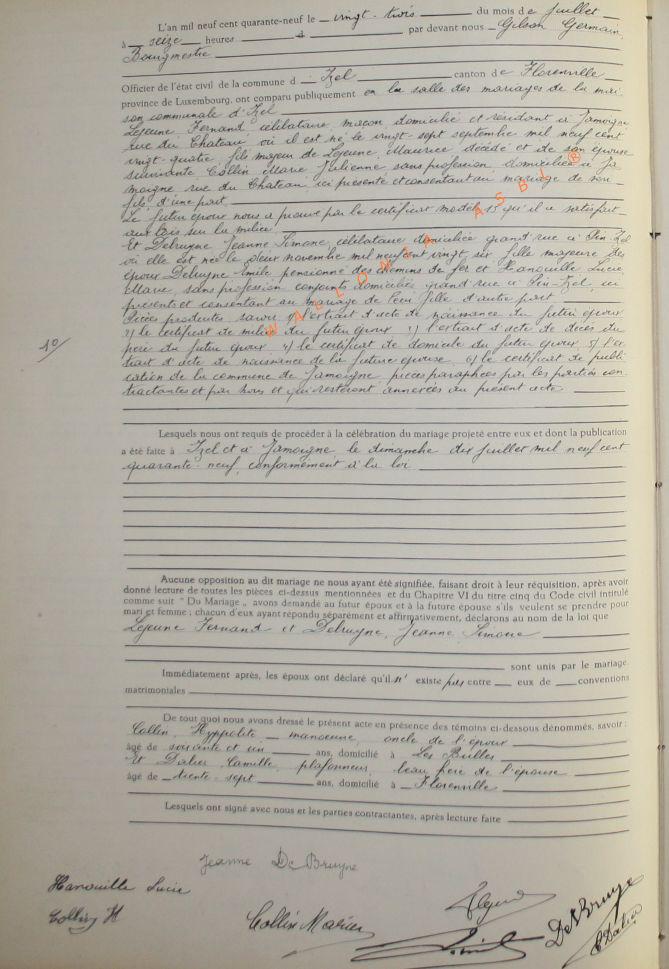 L'an mil neuf cent quarante-neuf le vingt-trois du mois de juillet
à seize heures d par devant nous Gilson Germain,
Bourgmestre
Officier de l'état civil de la commune d Izel canton de Florenville
province de Luxembourg, ont comparu publiquement en la salle des mariages de la mai
son communale d'Izel
Lejeune, Fernand, célibataire, maçon, domicilié et résidant à Jamoigne
rue du Chateau où il est né le vingt-sept septembre mil neuf cent
vingt-quatre, fils majeur de Lejeune, Maurice décédé et de son épouse
survivante Collin Marie Julienne sans profession domiciliée à Ja
moigne rue du Chateau ici présente et consentant au mariage de son
fils, d'une part
Le futur époux nous a prouvé par le certificat modèle 15 qu'il a satisfait
aux lois sur la milice
Et Debruyne Jeanne Simone, célibataire domiciliée grand'rue à Pin-Izel
où elle est née le deux novembre mil neuf cent vingt six fille majeure des
époux Debruyne Emile pensionné des chemins de fer et Hanouille Lucie
Marie, sans profession conjoints domiciliés grand'rue à Pin-Izel, ici
présents et consentant au mariage de leur fille d'autre part
Pièces produites savoir 1) l'extrait d'acte de naissance du futur époux
2) le certificat de milice du futur époux 3) l'extrait d'acte de décès du
père du futur époux 4) le certificat de domicile du futur époux 5) l'ex
trait d'acte de naissance de la future épouse 6) le certificat de publi
cation de la commune de Jamoigne, pièces paraphées par les parties con
tractantes et par nous et qui resteront annexées au présent acte
10/
WALLONIA ASBL B
Lesquels nous ont requis de procéder à la célébration du mariage projeté entre eux et dont la publication
a été faite à Izel et à Jamoigne le dimanche dix juillet mil neuf cent
quarante-neuf, conformément à la loi
Aucune opposition au dit mariage ne nous ayant été signifiée, faisant droit à leur réquisition, après avoir
donné lecture de toutes les pièces ci-dessus mentionnées et du Chapitre VI du titre cinq du Code civil intitulé
comme suit " Du Mariage „ avons demandé au futur époux et à la future épouse s'ils veulent se prendre pour
mari et femme ; chacun d'eux ayant répondu séparément et affirmativement, déclarons au nom de la loi que
Lejeune Fernand et Debruyne, Jeanne Simone
sont unis par le mariage.
Immédiatement après, les époux ont déclaré qu'il n' existe pas entre eux de conventions
matrimoniales
De tout quoi nous avons dressé le présent acte en présence des témoins ci-dessous dénommés, savoir :
Collin, Hyppolite manoeuvre, oncle de l'époux
âgé de soixante et un ans, domicilié à Les Bulles
Et Dalier Camille, plafonneur, beau frère de l'épouse
âgé de trente-sept ans, domicilié à Florenville
Lesquels ont signé avec nous et les parties contractantes, après lecture faite
Jeanne De Bruyne
Hanouille Lucie
Collin H
Collin Marie
DeBruyne
C Dalier